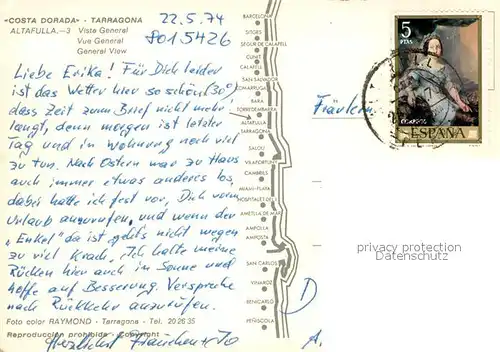 «COSTA DORADA» - TARRAGONA
ALTAFULLA.-3 Vista General
Vue General
General View
22.5.74
8015426
Liebe Erika! Für Dich leider
ist das Wetter hier so schön (30°)
dass Zeit zum Brief nicht mehr
langt, denn morgen ist letzter
Tag und in Wohnung noch viel
zu tun. Nach Ostern war zu Haus
auch immer etwas anderes los,
dabei hatte ich fest vor, Dich vorm
Urlaub anzurufen, und wenn der
"Enkel" da ist geht's nicht wegen
zu viel Krach. Ich halte meine
Rücken hier auch in Sonne und
hoffe auf Besserung. Verspreche
nach Rückkehr anzurufen.
Herzlichst
Foto color RAYMOND - Tarragona - Tel. 20 26 35
Reproducción prohibida - Copyright
BARCELONA
SITGES
SEGUR DE CALAFELL
CUNIT
CALAFELL
SAN SALVADOR
COMARRUGA
BARA
TORREDEMBARRA
ALTAFULLA
TARRAGONA
SALOU
VILAFORTUNY
CAMBRILS
MIAMI-PLAYA
HOSPITALET DEL I.
AMETLLA DE MAR
AMPOLLA
AMPOSTA
SAN CARLOS
VINAROZ
BENICARLO
PEÑISCOLA
Fräulein
D
A.
5
PTAS
CORREOS
ESPAÑA
privacy protection
Datenschutz